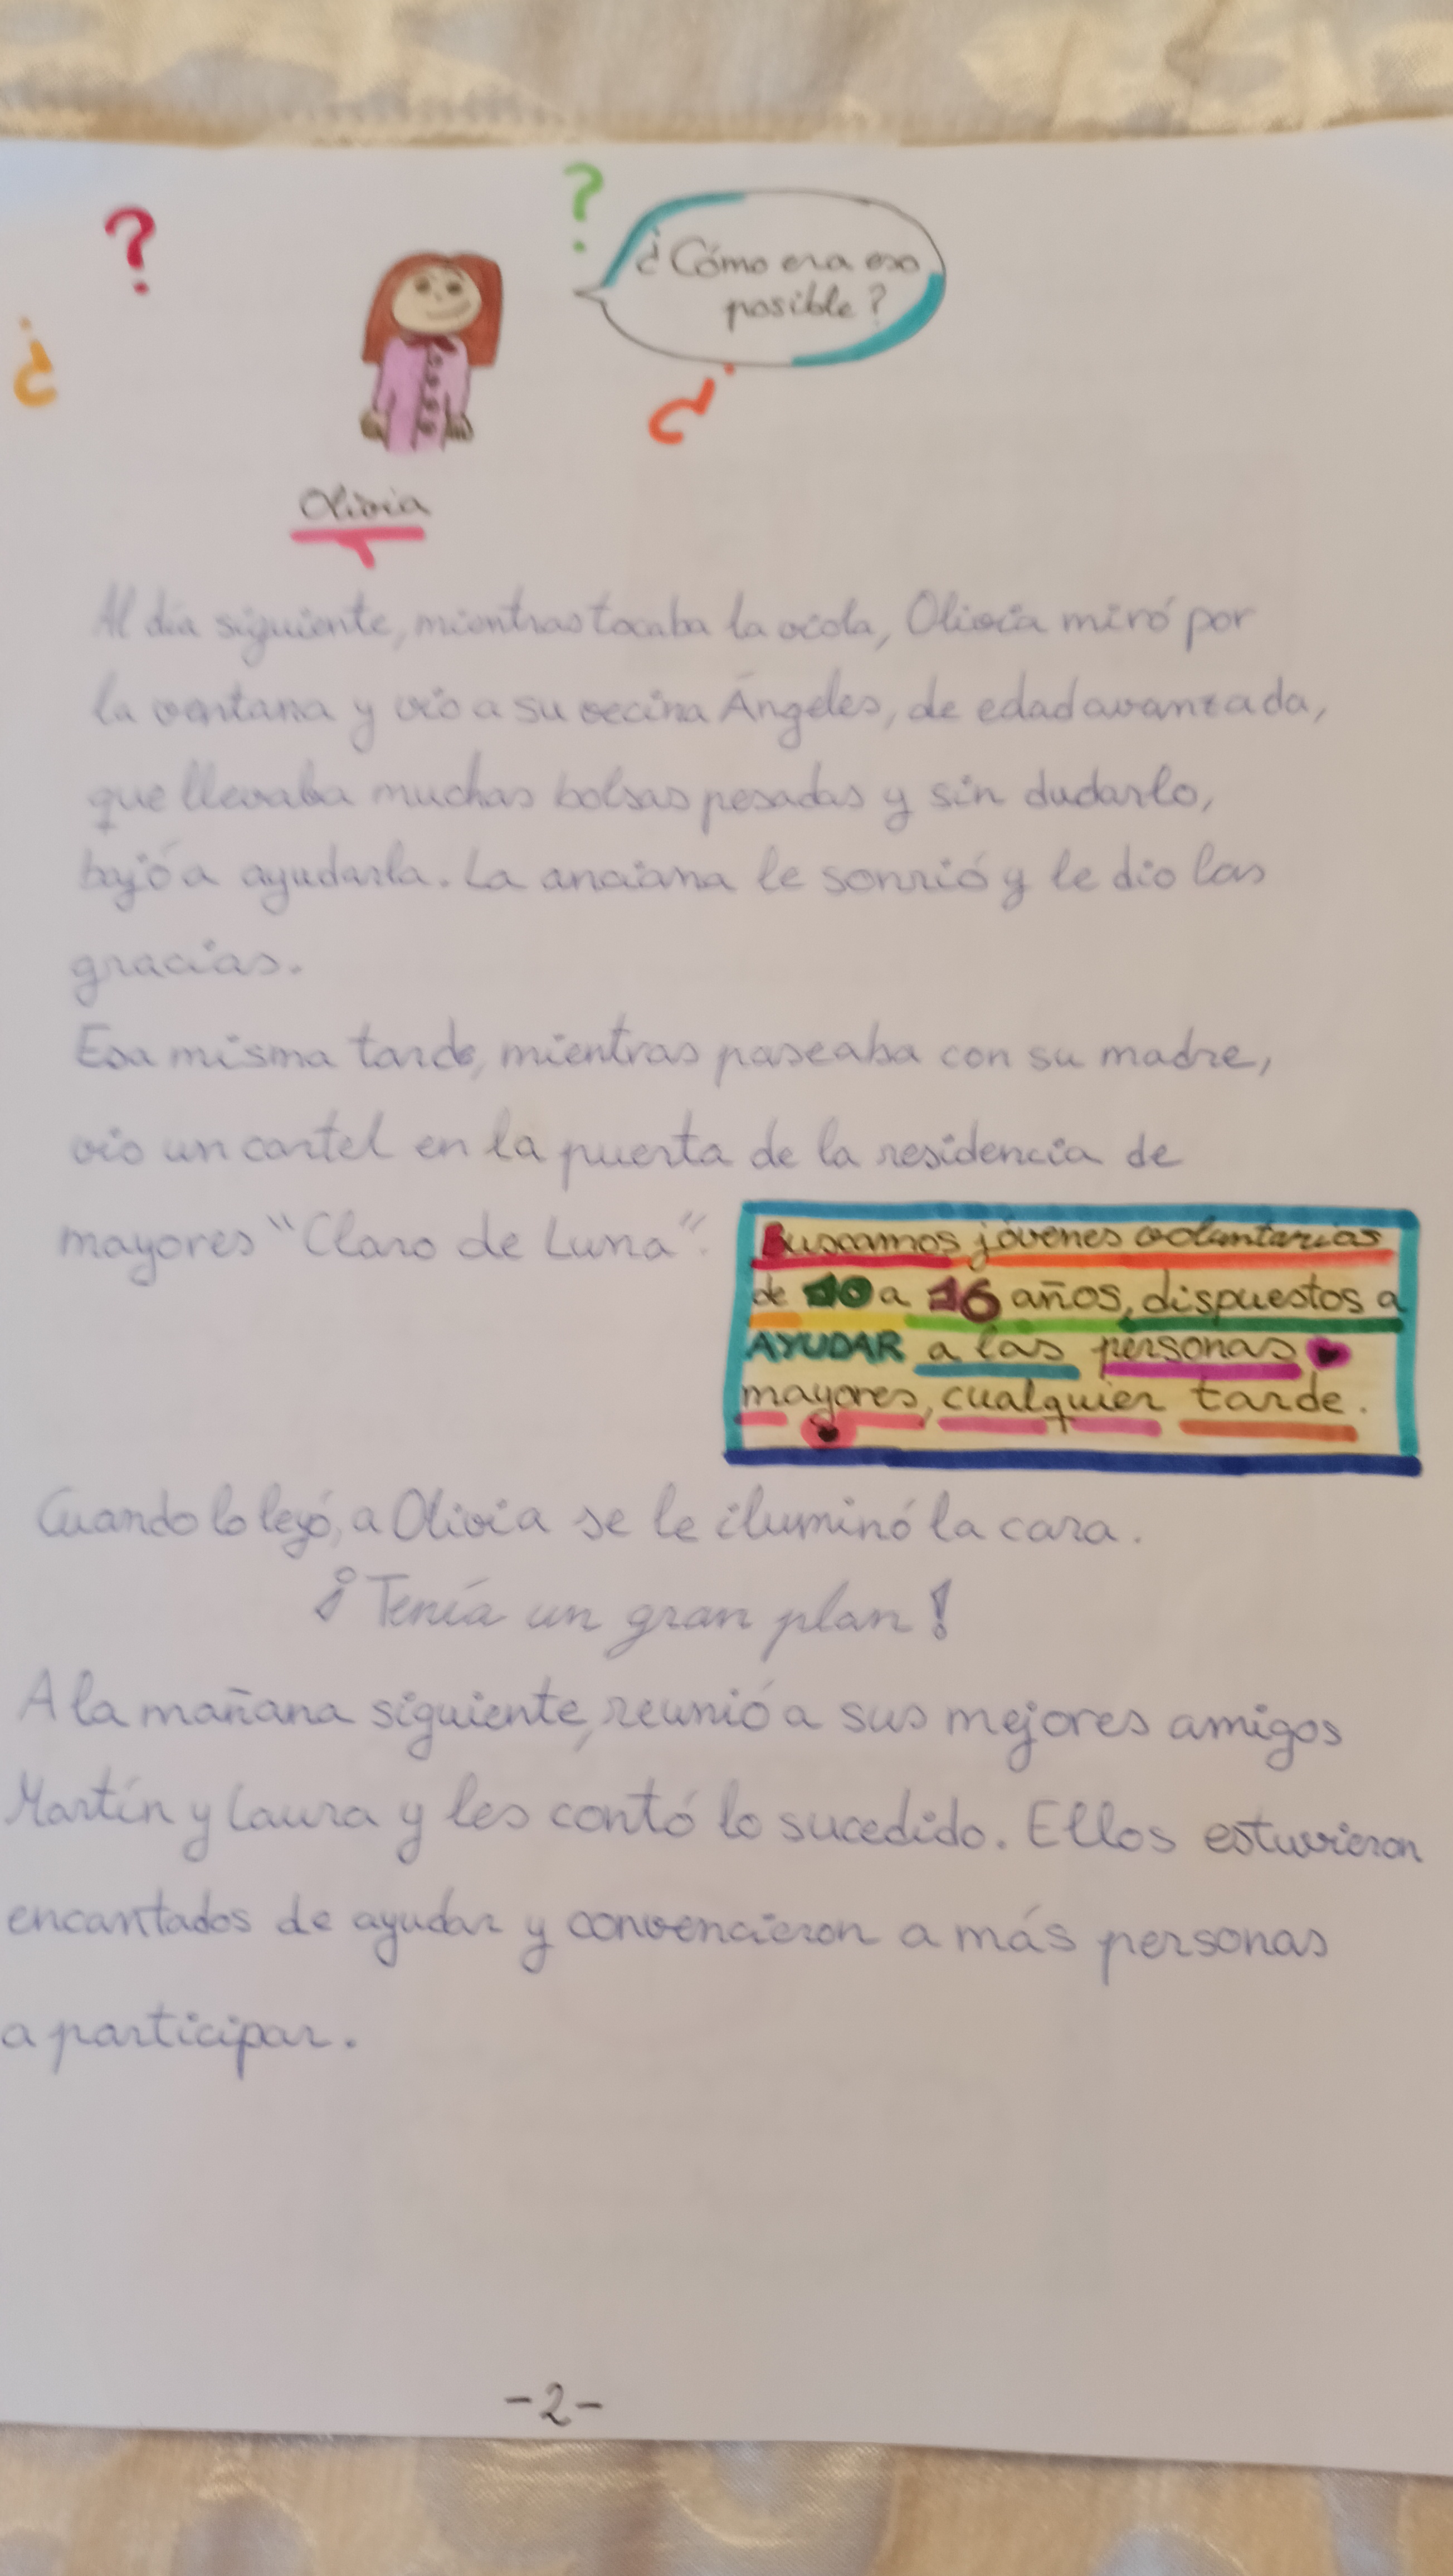 ?
?
¿Cómo era eso
posible?
¿
¿
Olivia
Al día siguiente, mientras tocaba la viola, Olivia miró por
la ventana y vio a su vecina Ángeles, de edad avanzada,
que llevaba muchas bolsas pesadas y sin dudarlo,
bajó a ayudarla. La anciana le sonrió y le dio las
gracias.
Esa misma tarde, mientras paseaba con su madre,
vio un cartel en la puerta de la residencia de
mayores "Claro de Luna".
Buscamos jóvenes voluntarios
de 10 a 16 años, dispuestos a
AYUDAR a las personas
mayores, cualquier tarde.
Cuando lo leyó, a Olivia se le iluminó la cara.
¡Tenía un gran plan!
A la mañana siguiente, reunió a sus mejores amigos
Martín y Laura y les contó lo sucedido. Ellos estuvieron
encantados de ayudar y convencieron a más personas
a participar.
-2-